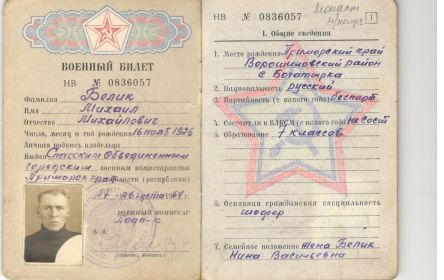 ВОЕННЫЙ БИЛЕТ
НВ № 0836057
Фамилия Белик
Имя Михаил
Отчество Михайлович
Число, месяц и год рождения 16 ноября 1926
Личная подпись владельца
Выдан Спасским Объединенным
городским военным комиссариатом
Приморского края области (республики)
27 августа 64 г.
ВОЕННЫЙ КОМИССАР
подп-к
М. П.
НВ № 0836057
1
I. Общие сведения
1. Место рождения Приморский край
Ворошиловский район
с Богатырка
2. Национальность русский
3. Партийность (с какого года) беспарт
4. Состоит ли в ВЛКСМ (с какого года) не сост
5. Образование 7 классов
6. Основная гражданская специальность
шофер
7. Семейное положение жена Белик
Нина Васильевна